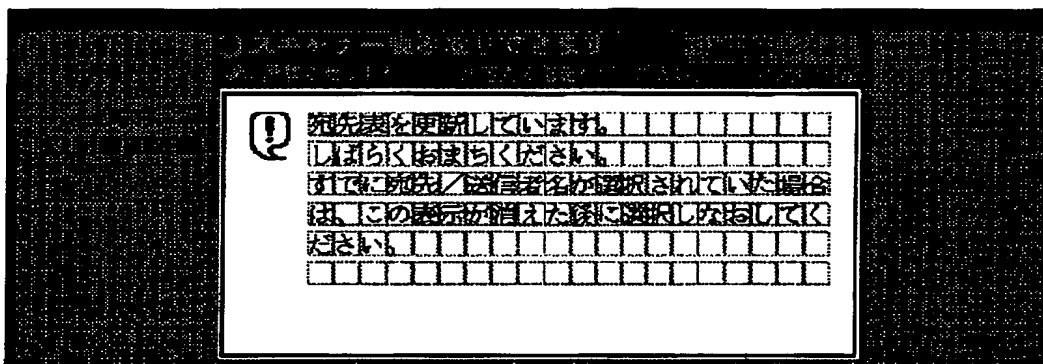 宛先表を更新しています。
しばらくおまちください。
すでに宛先/送信者名が選択されていた場合
は、この表示が消えた後に選択しなおしてく
ださい。